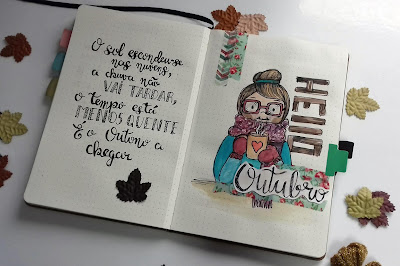 O sol escondeu-se
nas nuvens,
a chuva não
VAI TARDAR,
o tempo está
MENOS QUENTE
É o Outono a
chegar
HELLO
Outubro